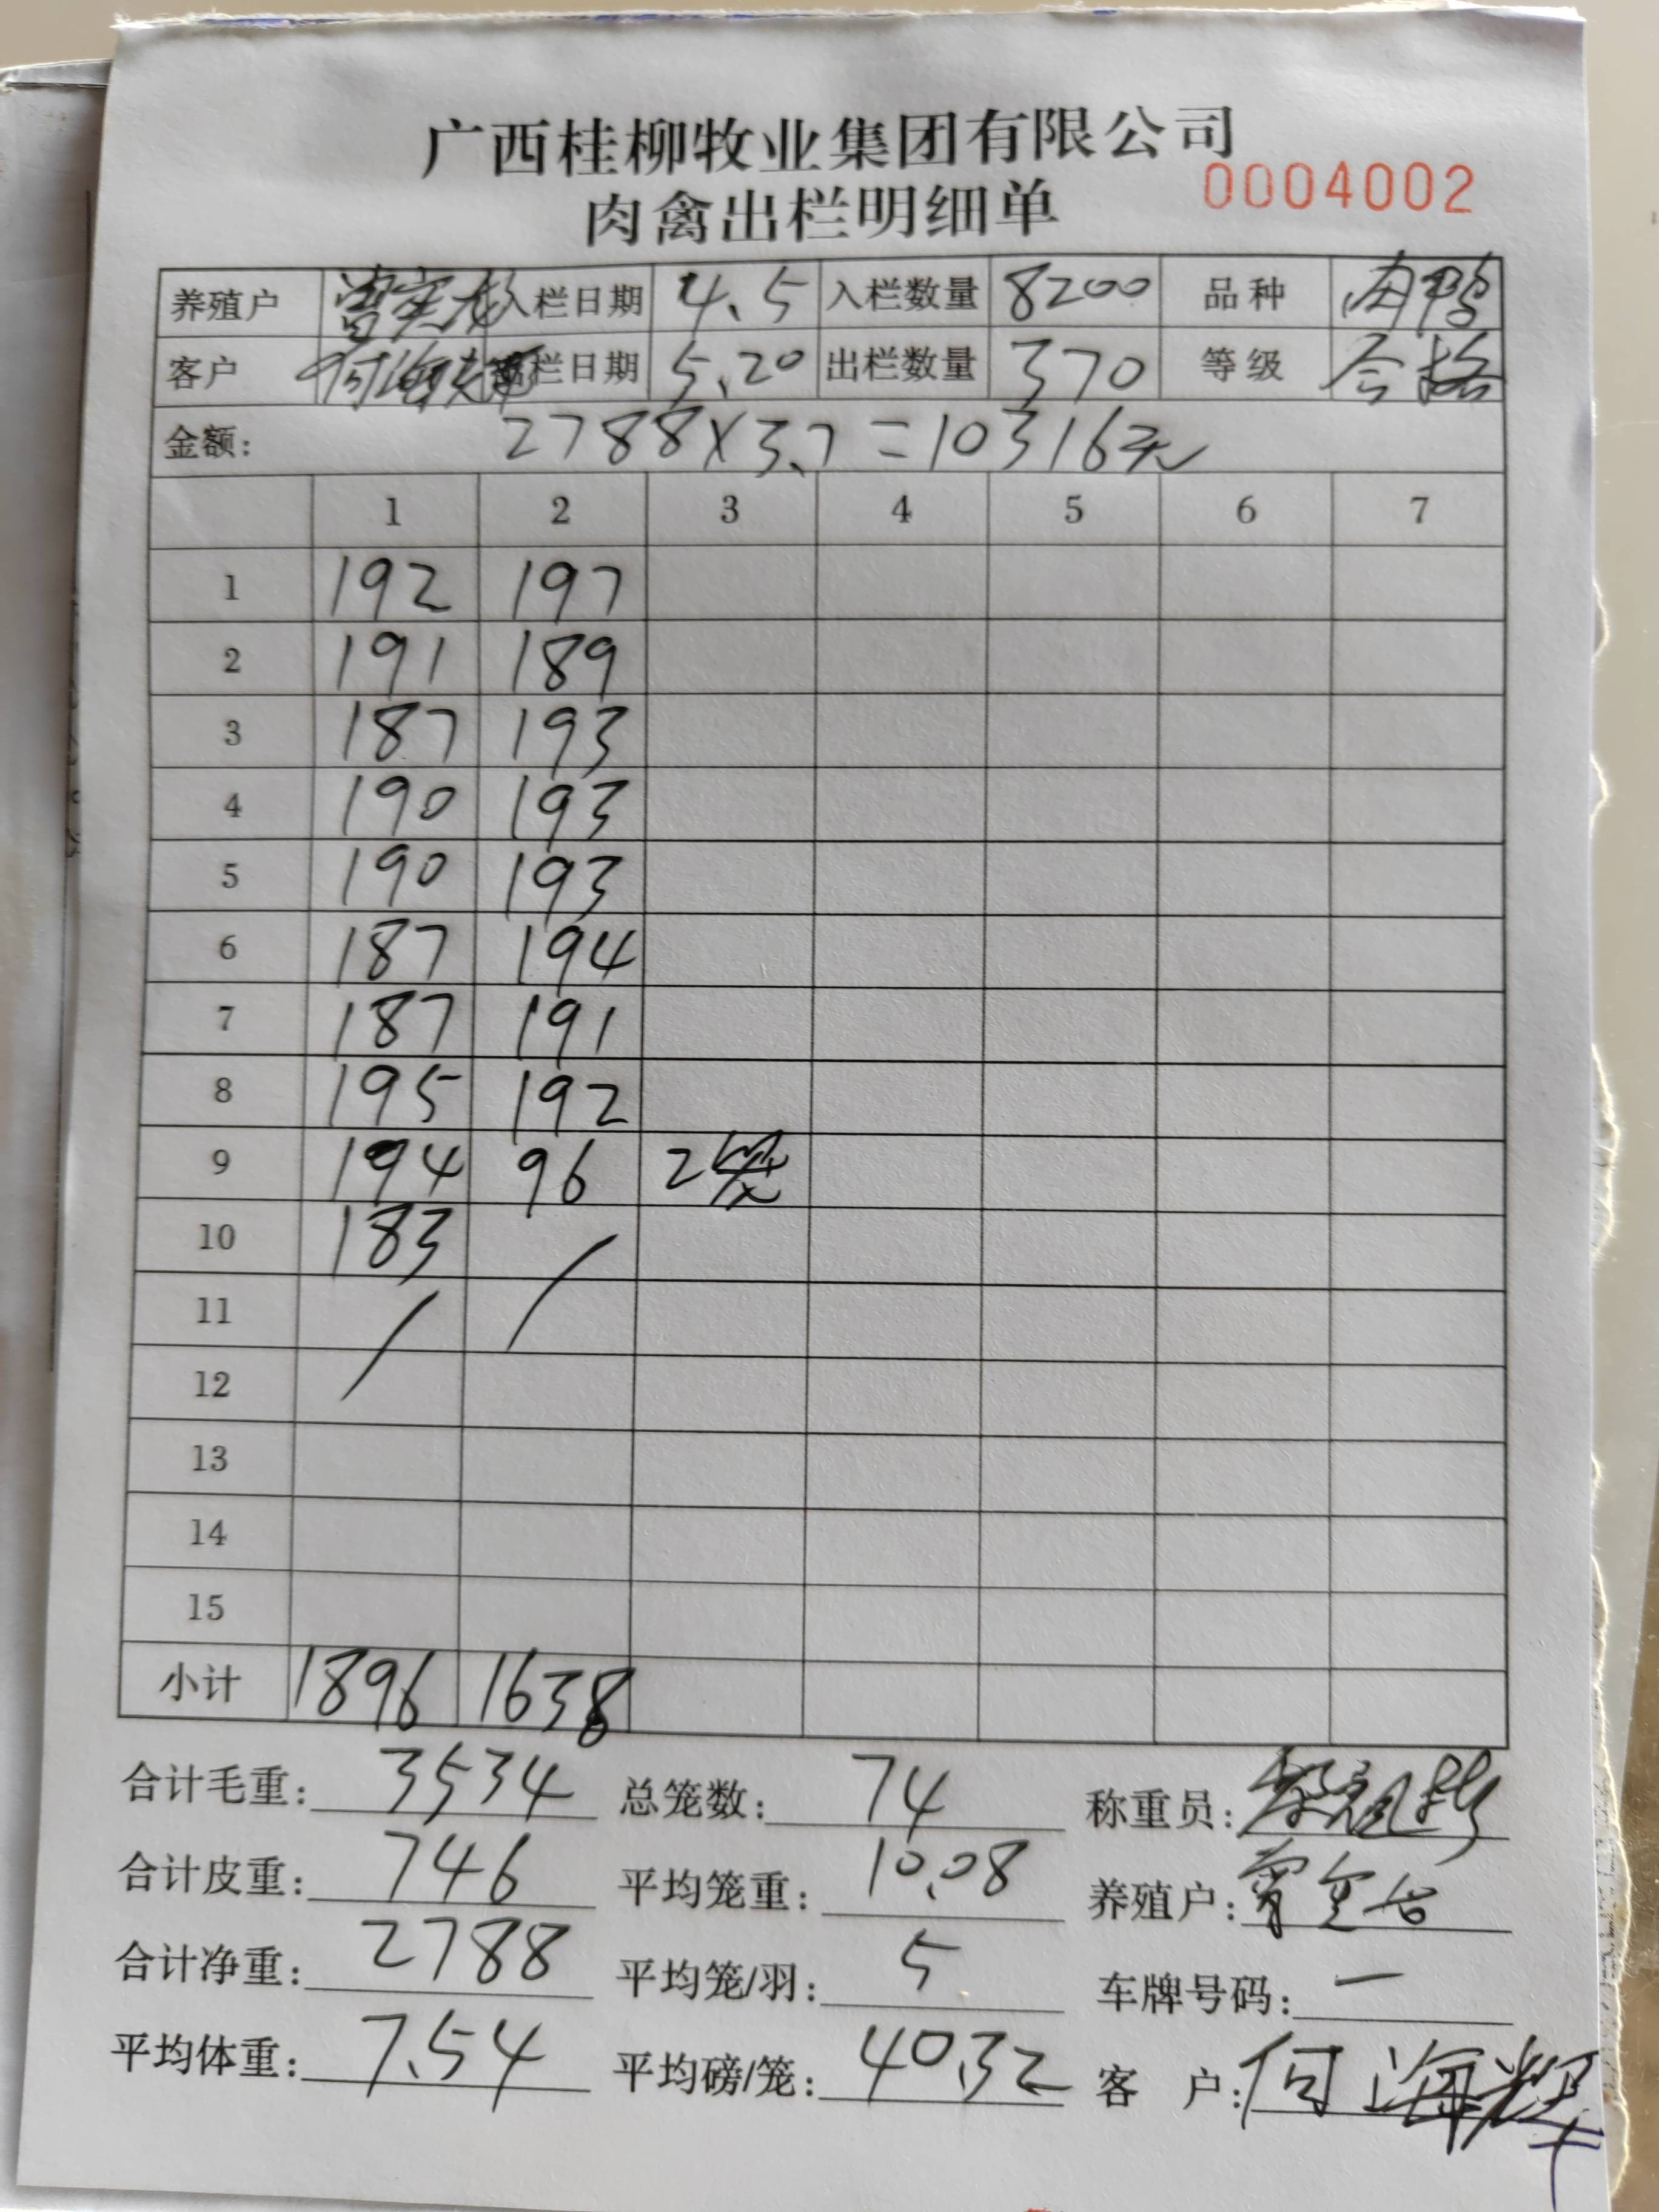 广西桂柳牧业集团有限公司
肉禽出栏明细单 0004002
养殖户 入栏日期 4.5 入栏数量 8200 品种 肉鸭
客户 何海辉 出栏日期 5.20 出栏数量 370 等级 合格
金额: 2788×3.7=10316元
1 2 3 4 5 6 7
1 192 197
2 191 189
3 187 193
4 190 193
5 190 193
6 187 194
7 187 191
8 195 192
9 194 96 2笼
10 183
11
12
13
14
15
小计 1896 1638
合计毛重: 3534 总笼数: 74 称重员:
合计皮重: 746 平均笼重: 10.08 养殖户:
合计净重: 2788 平均笼/羽: 5 车牌号码: 一
平均体重: 7.54 平均磅/笼: 40.32 客户: 何海辉